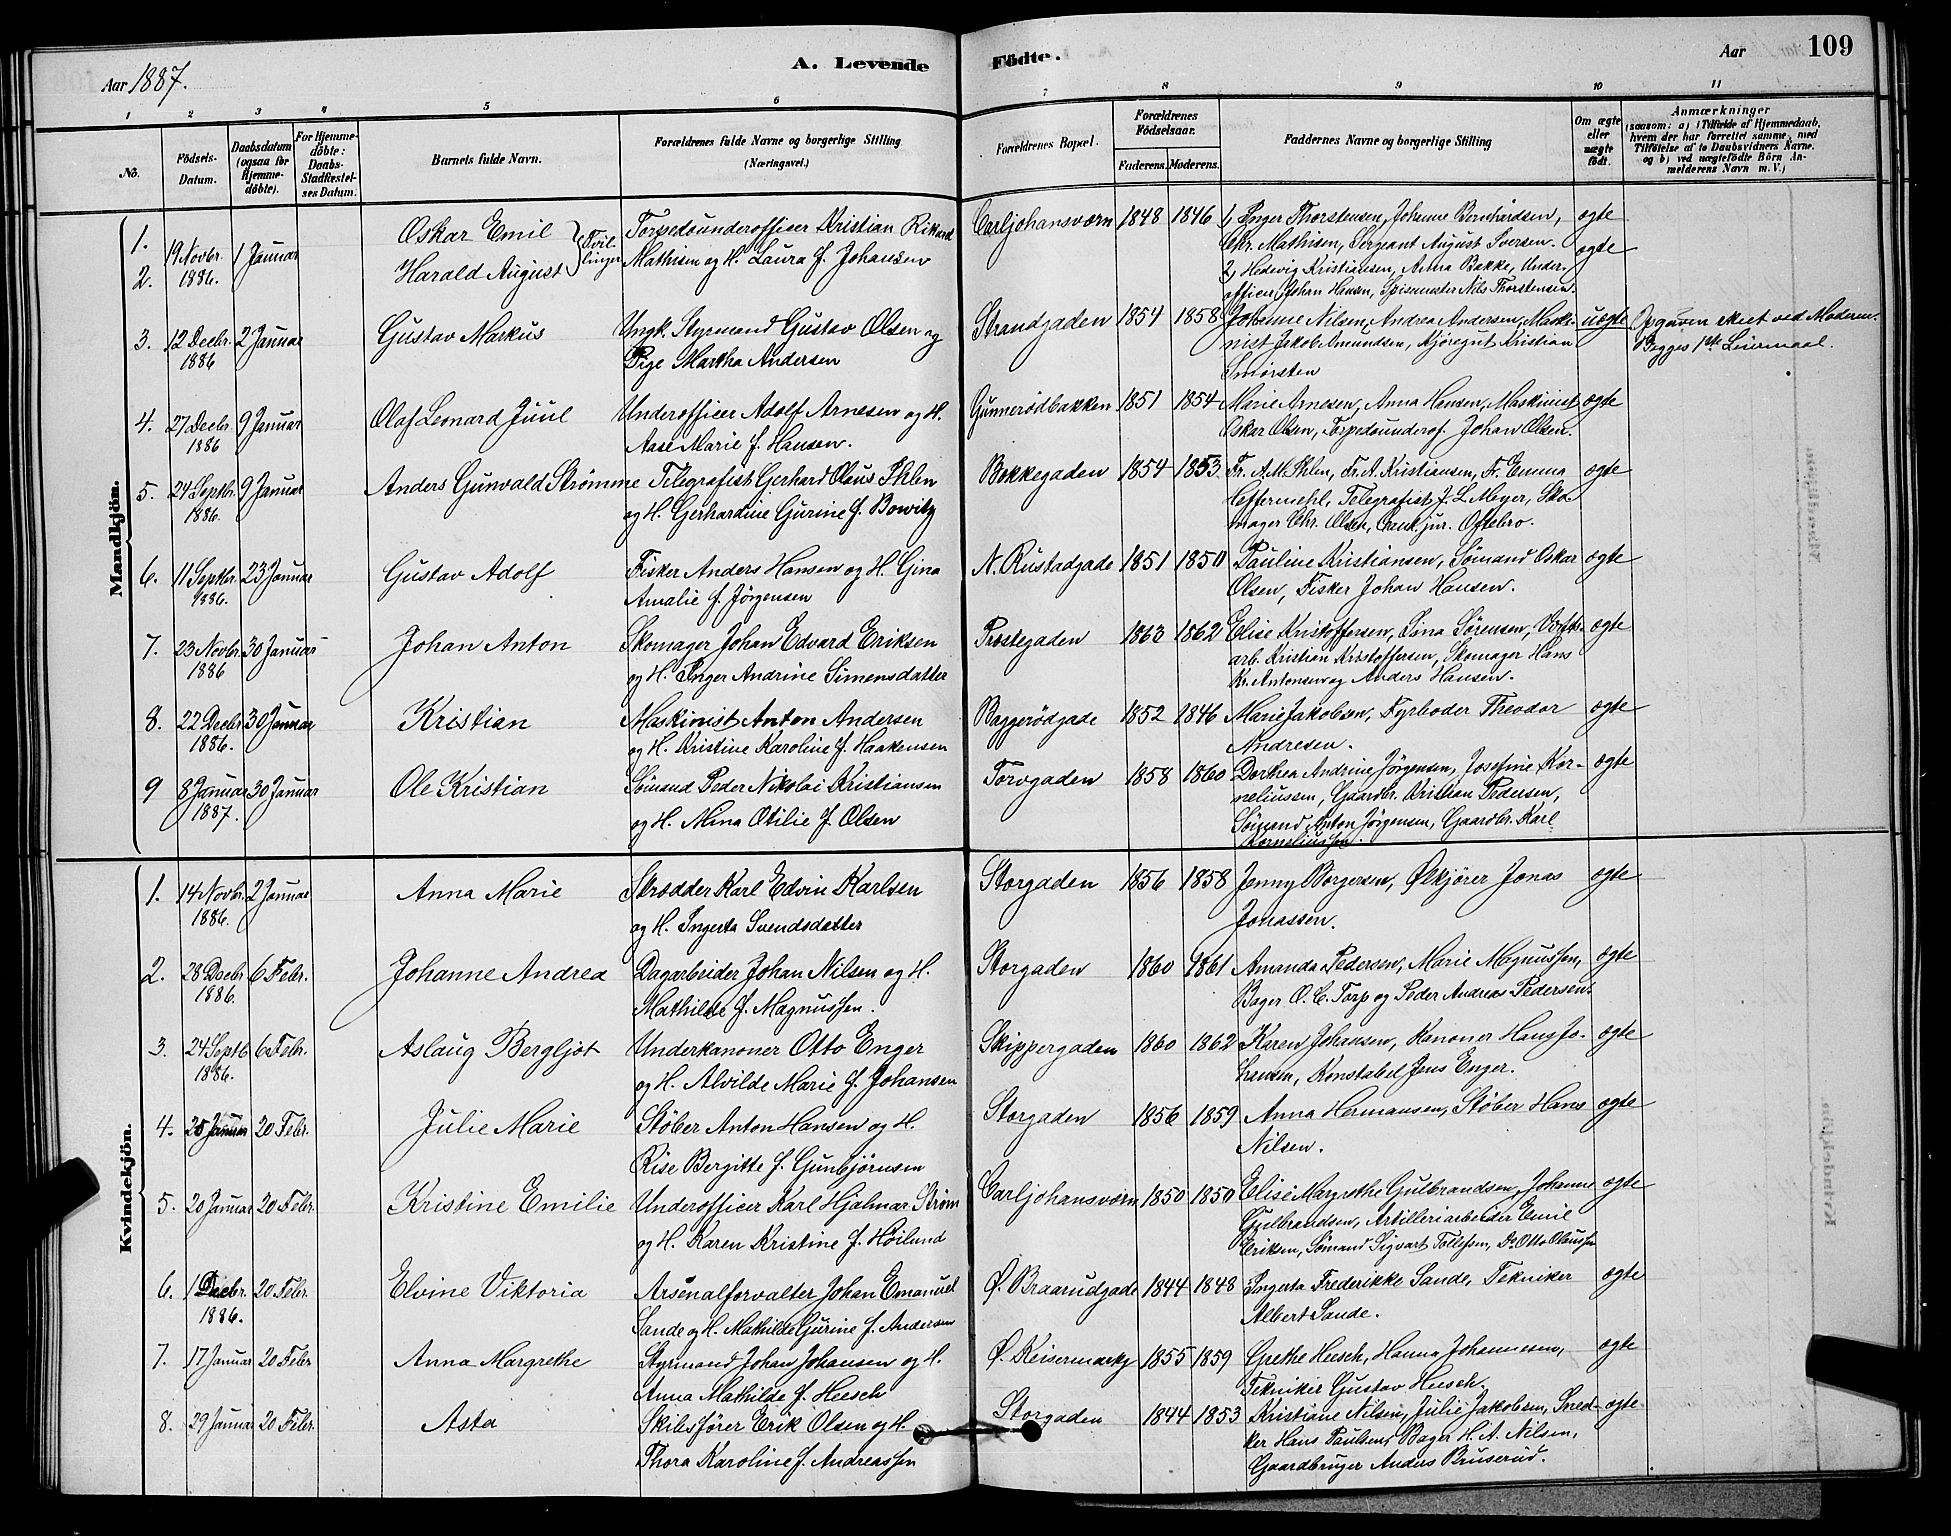 A. Levende Födte.
Aar 1887.
Aar 109
1 2 3 4 5 6 7 8 9 10 11
No.
Födsels-Datum.
Daabsdatum (ogsaa for Hjemme-döbte).
For Hjemme-döbte: Daabs-Stadfæstel-ses Datum.
Barnets fulde Navn.
Forældrenes fulde Navne og borgerlige Stilling (Næringsvei.)
Forældrenes Bopæl.
Forældrenes Födselsaar.
Faderens. Moderens.
Faddernes Navne og borgerlige Stilling
Om ægte eller uægte födt.
Anmærkninger
(saasom: a) i Tilfælde af Hjemmedaab, hvem der har forrettet samme, med Tilföielse af to Daabsvidners Navne. og b) ved uægtefödte Börn An-melderens Navn m. V.)
Mandkjön.
1. 19 Novbr. 1 Januar Oskar Emil } Tvil- Torpedounderofficer Kristian Rikard Carljohansværn 1848 1846 1, Inger Thorstensen, Johanne Bernhardsen, ægte
2. 1886. Harald August linger Mathisen og H. Laura f. Johansen Chr. Mathisen, Sergeant August Iversen. ægte
2, Hedevig Kristiansen, Anna Bakke, Under-
officer Johan Hansen, Spisemester Nils Thorstensen.
3. 12 Decbr. 2 Januar Gustav Markus Ungk. Styrmand Gustav Olsen og Strandgaden 1854 1858 Johanne Nilsen, Andrea Andersen, Maski- uægte Opgaven skeet ved Moderen.
1886 Pige Martha Andersen nist Jakob Amundsen, Kjøregut Kristian Begges 1ste Leiermaal.
Smørsten
4. 27 Decbr. 9 Januar Olaf Leonard Juul Underofficer Adolf Arnesen og H. Gunnerødbakken 1851 1854 Marie Arnesen, Anna Hansen, Maskinist ægte
1886 Aase Marie f. Hansen. Oskar Olsen, Torpedounderof. Johan Olsen.
5. 24 Septbr. 9 Januar Anders Gunvald Strømme Telegrafist Gerhard Olaus Ihlen Bakkegaden 1854 1853 Fr. A. M. Ihlen, Fr. A. Kristiansen, F. Emma ægte
1886. og H. Gerhardine Gurine f. Bowitz Heffermehl, Telegrafist J. L. Meyer, Sko-
mager Chr. Olsen, Cand. jur. Oftebro.
6. 11 Septbr. 23 Januar Gustav Adolf Fisker Anders Hansen og H. Gina N. Rustadgade 1851 1850 Pauline Kristiansen, Sømand Oskar ægte
1886. Amalie f. Jørgensen Olsen, Fisker Johan Hansen.
7. 23 Novbr. 30 Januar Johan Anton Skomager Johan Edvard Eriksen Prestegaden 1863 1862 Elise Kristoffersen, Lina Sørensen, Værks- ægte
1886 og H. Inger Andrine Simensdatter arb. Kristian Kristoffersen, Skomager Hans
Kr. Antonsen og Anders Hansen.
8. 22 Decbr. 30 Januar Kristian Maskinist Anton Andersen Baggerødgade 1852 1846 Marie Jakobsen, Fyrbøder Theodor ægte
1886. og H. Kristine Karoline f. Haakensen Andresen.
9 8 Januar 30 Januar Ole Kristian Sømand Peder Nikolai Kristiansen Torvgaden 1858 1860 Dorthea Andrine Jørgensen, Josefine Kor- ægte
1887. og H. Mina Otilie f. Olsen neliussen, Gaardbr. Kristian Pedersen,
Sømand Anton Jørgensen, Gaardbr. Karl
Korneliussen.
Kvindekjön.
1. 14 Novbr. 2 Januar Anna Marie Skrædder Karl Edvin Karlsen Storgaden 1856 1858 Jenny Borgersen, Ølkjører Jonas ægte
1886. og H. Ingerta Svendsdatter Jonassen.
2. 28 Decbr. 6 Febr. Johanne Andrea Dagarbeider Johan Nilsen og H. Storgaden 1860 1861 Amanda Pedersen, Marie Magnussen, ægte
1886. Mathilde f. Magnussen. Bager O. C. Torp og Peder Andreas Pedersen.
3. 24 Septb. 6 Febr. Aslaug Bergljot Underkanoner Otto Enger Skippergaden 1860 1862 Karen Johansen, Kanoner Hans Jo- ægte
1886. og H. Alvilde Marie f. Johansen hansen, Konstabel Jens Enger.
4. 25 Januar 20 Febr. Julie Marie Støber Anton Hansen og H. Storgaden 1856 1859 Anna Hermansen, Støber Hans ægte
Rise Bergitte f. Gunbjørnsen Nilsen.
5. 20 Januar 20 Febr. Kristine Emilie Underofficer Karl Hjalmar Strøm Carljohansværn 1850 1850 Elise Margrethe Gulbrandsen, Johanne ægte
og H. Karen Kristine f. Høilund Gulbrandsen, Artilleriarbeider Emil
Eriksen, Sømand Sigvart Tollefsen, Do Otto Olaussen
6. 1 Decbr. 20 Febr. Elvine Viktoria Arsenalforvalter Johan Emanuel Ø. Braarudgade 1844 1848 Ingerta Frederikke Sande, Tekniker ægte
1886. Sande og H. Mathilde Gurine f. Andersen Albert Sande.
7. 17 Januar 20 Febr Anna Margrethe Styrmand Johan Johansen og H. Ø. Keisermarkg 1855 1859 Grethe Heesch, Hanna Johannesen, ægte
Anna Mathilde f. Heesch Tekniker Gustav Heesch.
8. 29 Januar 20 Febr. Asta Skibsfører Erik Olsen og H. Storgaden 1844 1853 Kristiane Nilsen, Julie Jakobsen, Sned- ægte
Thora Karoline f. Andreassen ker Hans Paulsen, Bager H. A. Nilsen,
Gaardbruger Anders Bruserud.